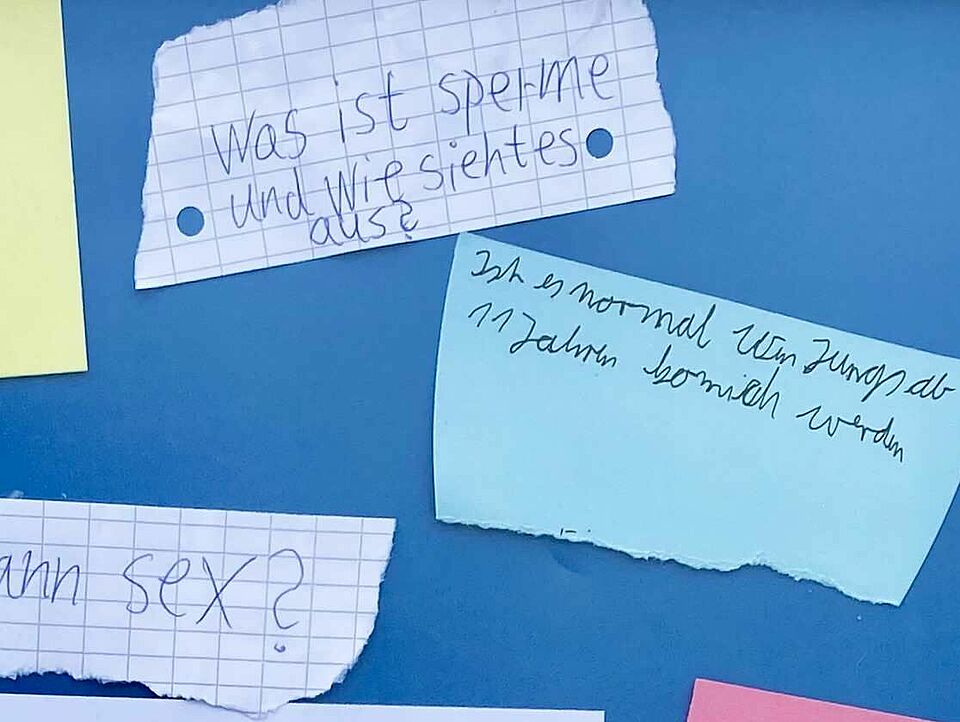 Was ist sperme
und wie sieht es
aus?
Ist es normal wen Jungs ab
11 Jahren komisch werden
ann sex?